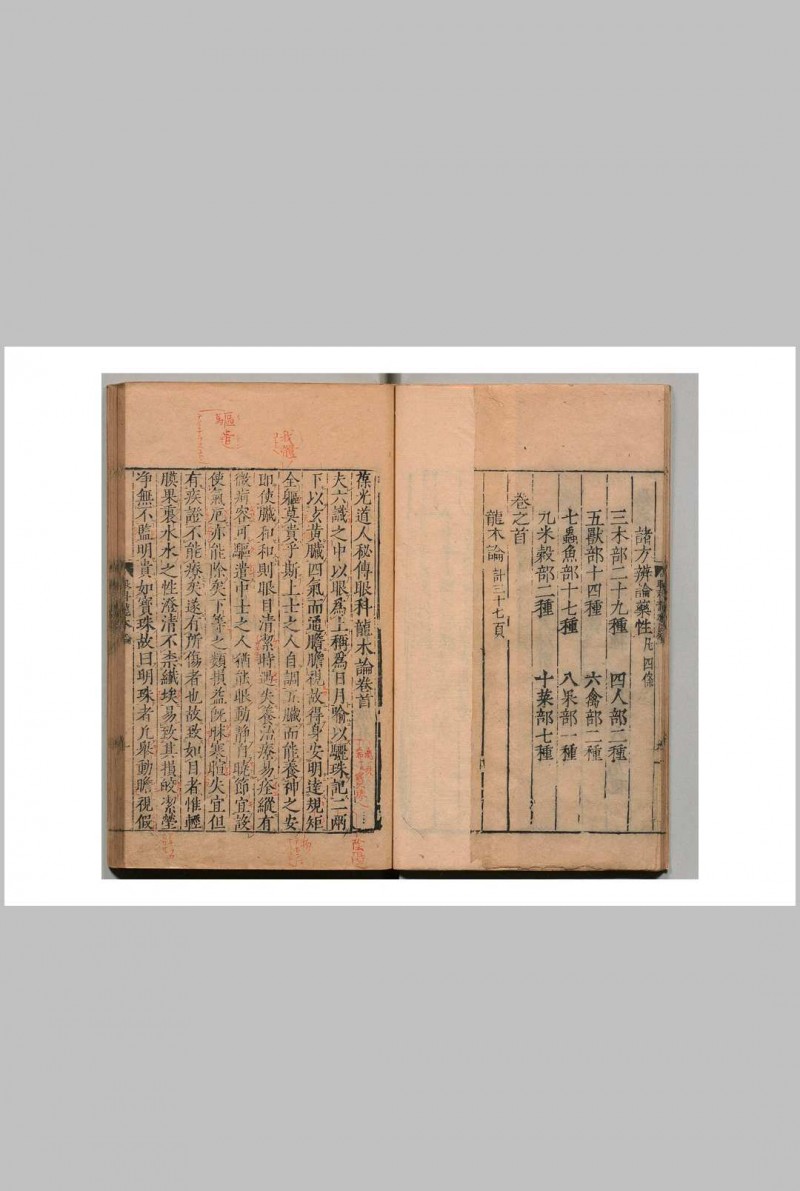 諸方辨論藥性 凡四條
三木部二十九種 四人部二種
五獸部十四種 六禽部二種
七蟲魚部十七種 八果部一種
九米榖部二種 十菜部七種
卷之首
龍木論 計三十七頁
葆光道人秘傳眼科龍木論卷首
夫六識之中以眼爲上稱爲日月喻以驪珠記二兩
下以玄黃臟四氣而通膽膽視故得身安明達規矩
全軀莫貴乎斯上士之人自調五臟而能養神之安
即使臟和和則眼目清潔時遇失養治療易痊縱有
微痾容可驅遣中士之人猶能眼動靜自曉節宜設
使氣厄亦能除矣下等之類損益既昧寒暄失宜但
有疾證不能療矣遂有所傷者也故致如目者惟輕
膜果裹水水之性澄清不柰纖埃易致其損皎潔瑩
净無不監明貴如寶珠故曰明珠者凡舉動瞻視假
驅遣